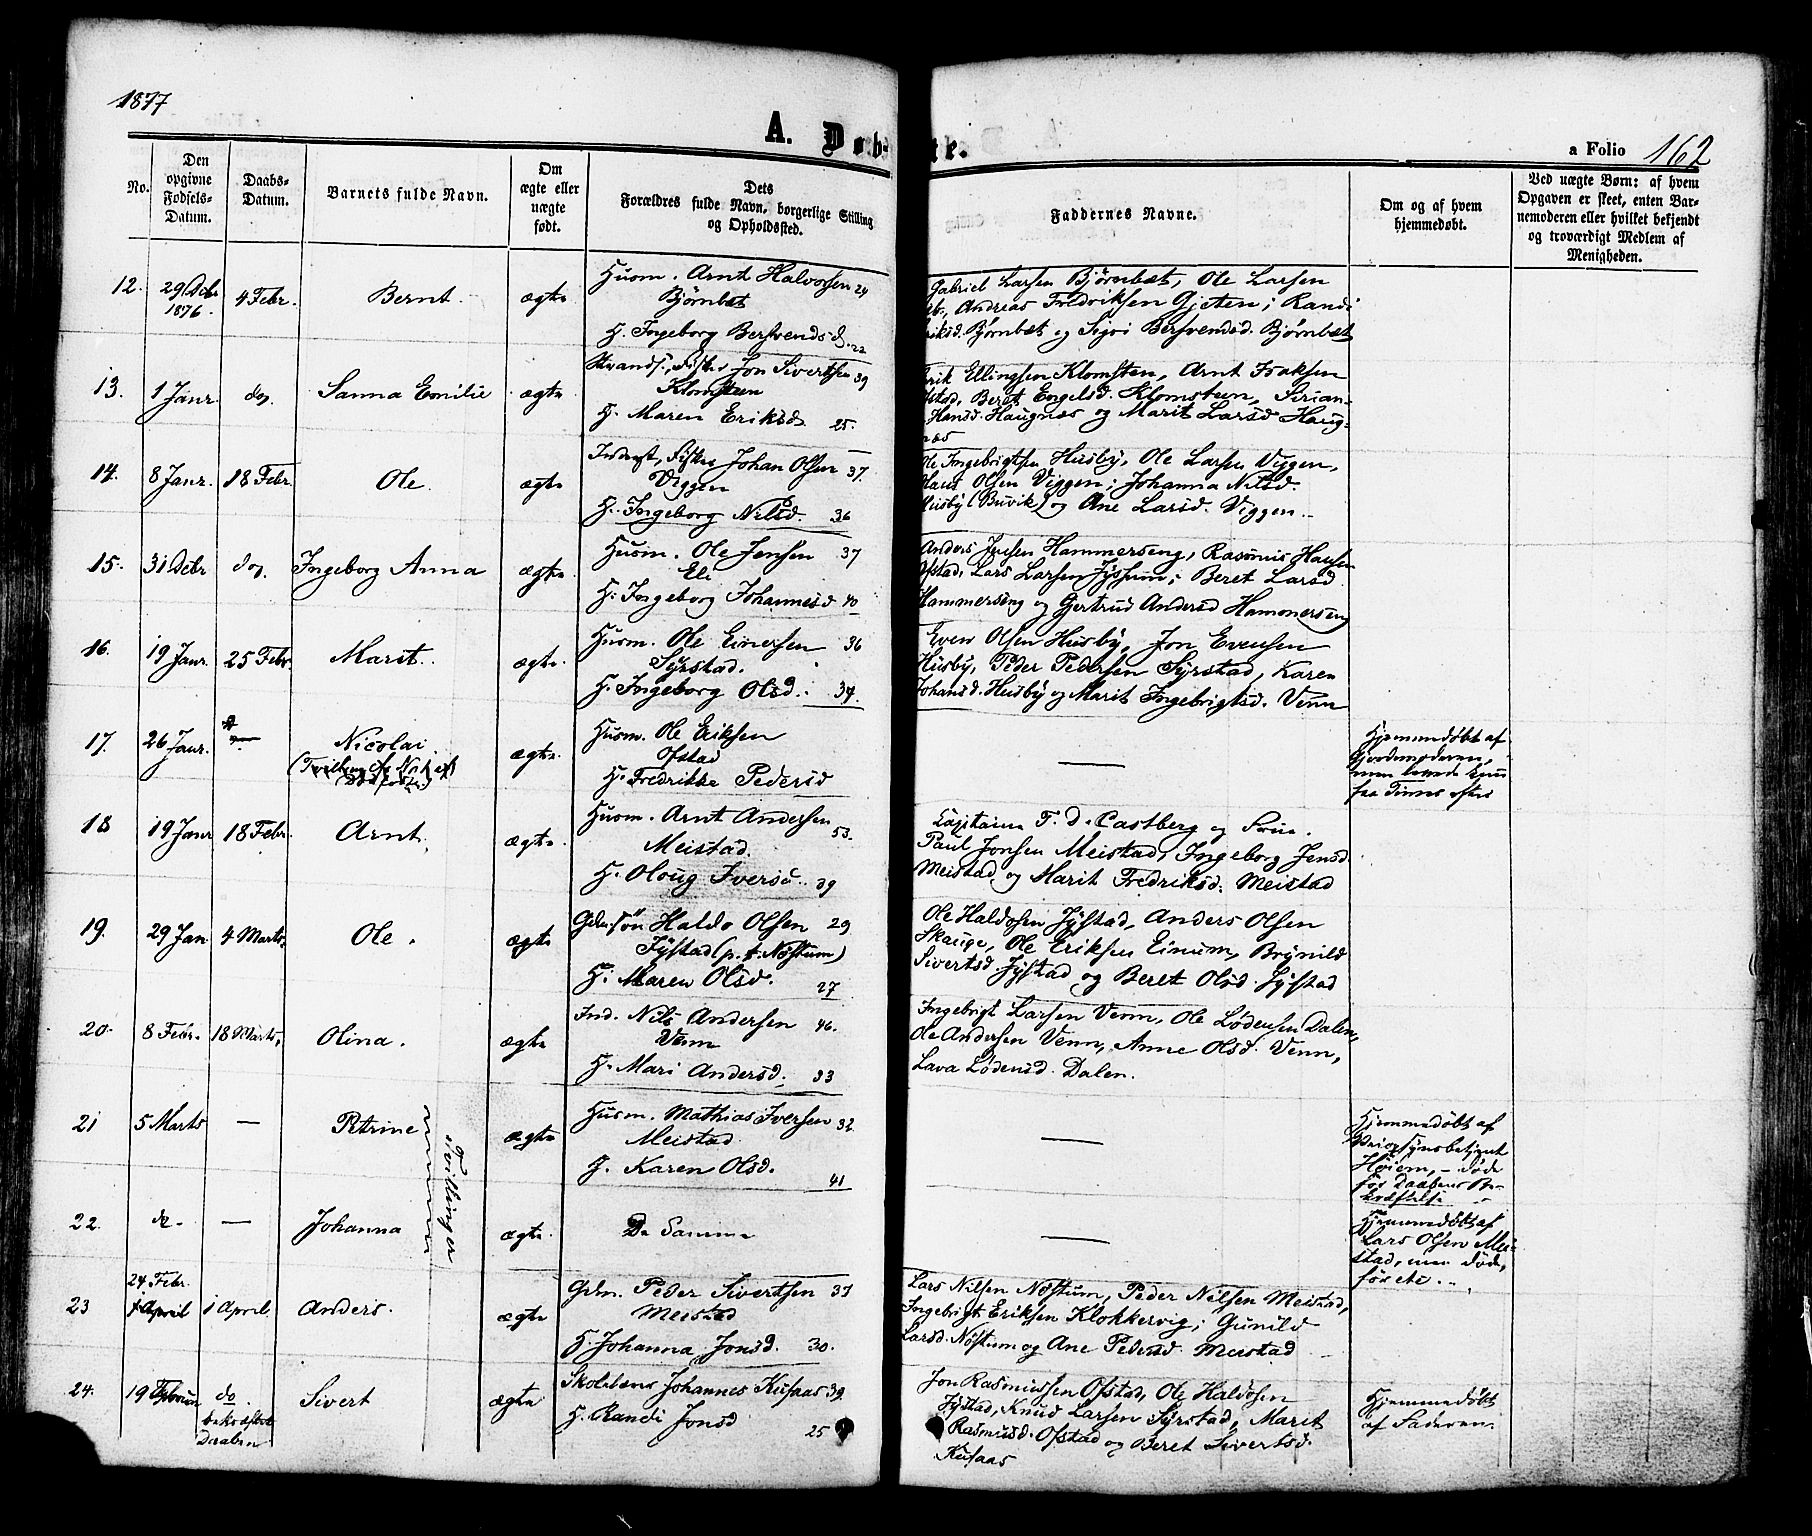 1877
A. Døb-
te.
a Folio 162
No.
Den
opgivne
Fødsels-
Datum.
Daabs-
Datum.
Barnets fulde Navn.
Om
ægte eller
uægte
født.
Dets
Forældres fulde Navn, borgerlige Stilling
og Opholdssted.
Faddernes Navne.
Om og af hvem
hjemmedøbt.
Ved uægte Børn: af hvem
Opgaven er skeet, enten Bar-
nemoderen eller hvilket bekjendt
og troværdigt Medlem af
Menigheden.
12. 29 Debr 1876. 4 Febr. Bernt. ægte
Husm. Arnt Halvorsen 24
Bjørnbæt
H. Ingeborg Bersvendsd. 22
Gabriel Larsen Bjørnbæt, Ole Larsen
Andreas Fredriksen Gjeten; Randi
Eriksd. Bjørnbæt og Sigri Bersvendsd. Bjørnbæt
13. 1 Janr. do. Sanna Emilie ægte
Strands., Fisker Jon Sivertsen 39
Klomsteen
H. Maren Eriksd. 25.
Erik Ellingsen Klomsten, Arnt
Ofstad, Beret Engelsd. Klomsteen,
Hansd. Haugnæs og Marit Larsd Haug-
næs
14. 8 Janr. 18 Febr. Ole. ægte
Inderst, Fisker Johan Olsen 37.
Viggen
H. Ingeborg Nilsd. 36
Ole Ingebrigtsen Husby, Ole Larsen Viggen,
Olsen Viggen; Johanna Nilsd.
Husby (Buvik) og Ane Larsd. Viggen.
15. 31 Debr do. Ingeborg Anna ægte
Husm. Ole Jensen 37
Eli
H. Ingeborg Johannesd 40
Anders Jensen Hammerseng, Rasmus Hansen
Ofstad, Lars Larsen Jyssum; Beret Larsd
Hammerseng og Gertrud Andersd Hammerseng
16. 19 Janr. 25 Febr. Marit. ægte.
Husm. Ole Einersen 36
Syrstad.
H. Ingeborg Olsd. 34.
Even Olsen Husby, Jon Evensen
Husby, Peder Pedersen Syrstad, Karen
Johansd. Husby og Marit Ingebrigtsd. Venn
17. 26 Janr. — Nicolai. ægte.
(Tvilling
Husm. Ole Eriksen
Ofstad
H. Fredrikke Pedersd
—
Hjemmedøbt af
Gjordemoderen,
men
faa Timer efter
18 19 Janr 18 Febr. Arnt. ægte.
Husm. Arnt Andersen 53.
Meistad.
H. Oloug Iversd. 39
Capitain T. d. Castberg og Frue.
Paul Jonsen Meistad, Ingeborg Jensd.
Meistad og Marit Fredriksd. Meistad
19. 29 Jan 4 Marts. Ole. ægte
Gdm.søn Haldo Olsen 29
Jystad (p. t. Nøstum)
H. Maren Olsd. 27
Ole Haldosen Jystad, Anders Olsen
Skauge, Ole Eriksen Einum, Brynild
Sivertsd. Jystad og Beret Olsd. Jystad
20. 8 Febr. 18 Marts. Olina. ægte
Ind. Nils Andersen 46.
Venn
H. Mari Andersd. 33
Ingebrigt Larsen Venn, Ole Lodensen Dalen,
Ole Andersen Venn, Anne Olsd. Venn,
Lava Lodensd. Dalen.
21 5 Marts — Petrine ægte
Tvillinger
Husm. Mathias Iversen 32.
Meistad
H. Karen Olsd. 41
—
Hjemmedøbt af
Opsynsbetjent
Høiem, – døde
før Daabens Be-
kræftelse
22. do. — Johanna ægte.
De Samme
—
Hjemmedøbt af
Lars Olsen Mei-
stad, men døde,
før etc.
23 24 Febr. 1 April 1 April. Anders. ægte
Gdm. Peder Sivertsen 37
Meistad
H. Johanna Jonsd. 30.
Lars Nilsen Nøstum, Peder Nilsen Meistad,
Ingebrigt Eriksen Klokkervig; Gunild
Larsd. Nøstum og Ane Pedersd. Meistad
24. 19 Februar do bekræftet Daaben Sivert ægte
Skolelærer Johannes Kusaas 39
H. Randi Jonsd 25
Jon Rasmussen Ofstad, Ole Haldosen
Jystad, Knud Larsen Syrstad, Marit
Rasmusd. Ofstad og Beret Sivertsd.
Kusaas
Hjemmedøbt
af Faderen.